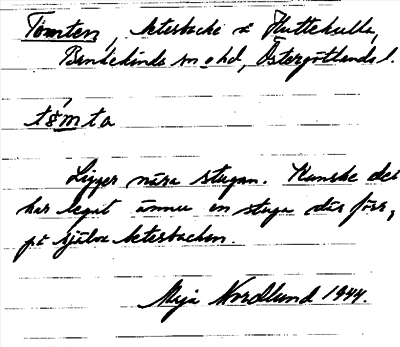 Tomten, Åkerbacke å Hultekulla,
Bankekinds sn o hd, Östergötlands l.
tòmta
Ligger nära stugan. Kanske det
har legat ännu en stuga där förr,
på själva åkerbacken.
Maja Nordlund 1944.